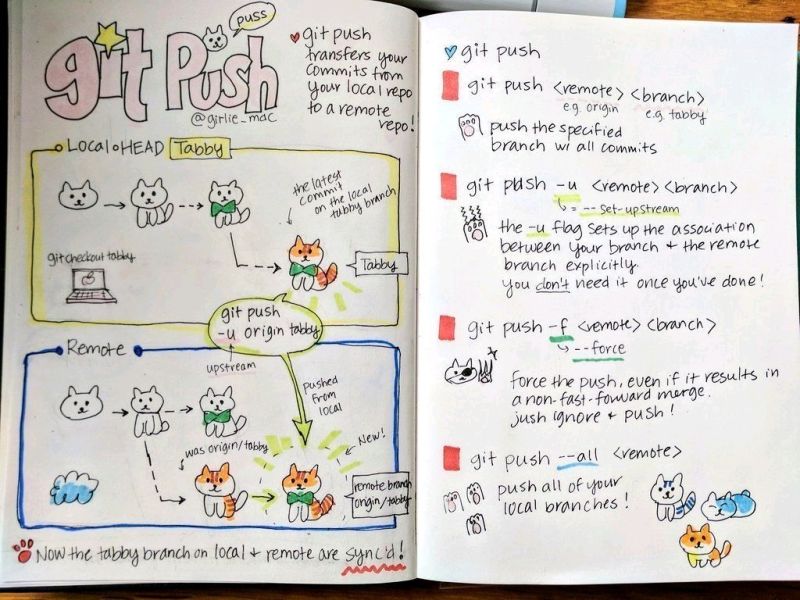 git Push
puss
@girlie_mac
git push
transfers your
commits from
your local repo
to a remote
repo!
Local HEAD Tabby
the latest
commit
on the local
tabby branch
git checkout tabby
Tabby
git push
-u origin tabby
upstream
Remote
pushed
from
local
was origin/tabby
New!
remote branch
origin/tabby
Now the tabby branch on local & remote are sync'd!
git push
git push <remote> <branch>
e.g. origin e.g. tabby
push the specified
branch w/ all commits
git push -u <remote> <branch>
= --set-upstream
the -u flag sets up the association
between your branch & the remote
branch explicitly.
you don't need it once you've done!
git push -f <remote> <branch>
--force
force the push, even if it results in
a non-fast-forward merge.
just ignore & push!
git push --all <remote>
push all of your
local branches!